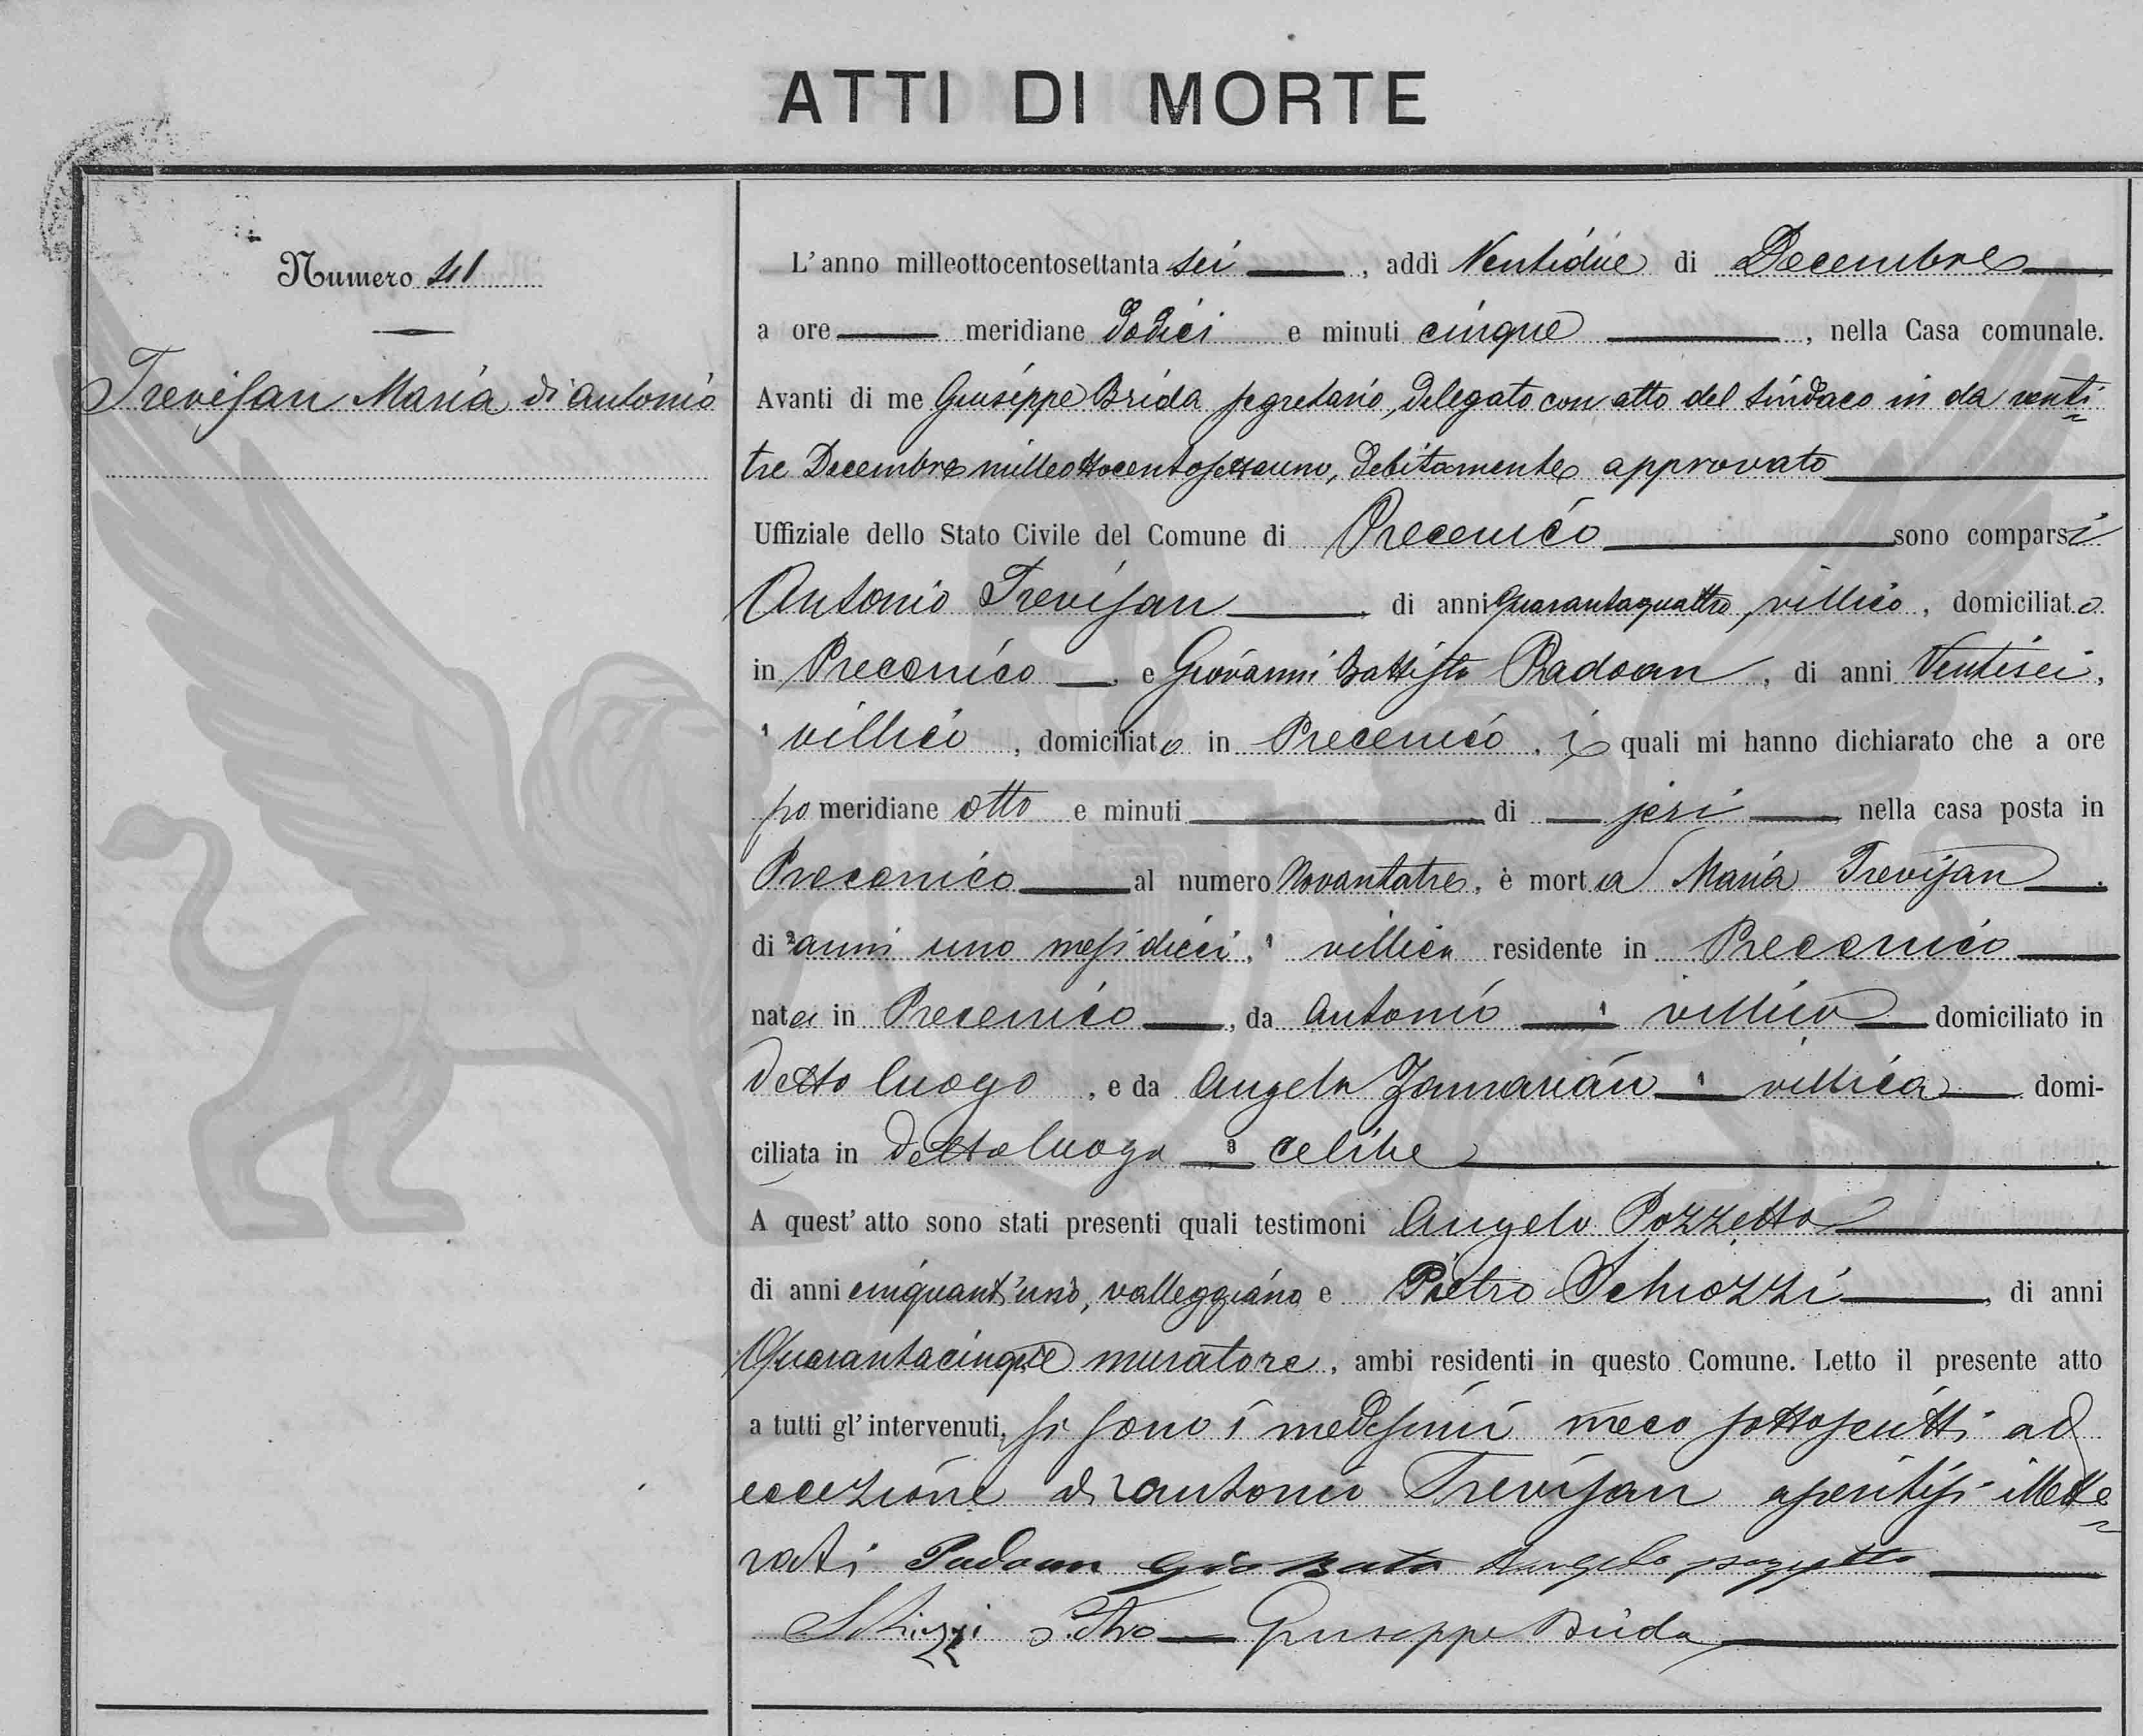 ATTI DI MORTE
Numero 41
Trevisan Maria di Antonio
L'anno milleottocentosettanta sei, addì Ventidue di Decembre
a ore meridiane dodici e minuti cinque, nella Casa comunale.
Avanti di me Giuseppe Brida segretario, delegato con atto del Sindaco in da venti
tre Decembre milleottocentosettauno, debitamente approvato
Uffiziale dello Stato Civile del Comune di Precenico sono comparsi
Antonio Trevisan di anni quarantaquattro, villico, domiciliato
in Precenico, e Giovanni Battista Padoan, di anni Ventisei,
villico, domiciliato in Precenico, i quali mi hanno dichiarato che a ore
po meridiane otto e minuti di jeri nella casa posta in
Precenico al numero Novantatre, è morta Maria Trevisan
di anni uno mesi dieci, villica residente in Precenico
nata in Precenico, da Antonio villico domiciliato in
detto luogo, e da Angela villica domi-
ciliata in detto luogo celibe
A quest'atto sono stati presenti quali testimoni Angelo Pozzetto
di anni cinquant'uno, valleggiano e Pietro Schiozzi, di anni
Quarantacinque muratore, ambi residenti in questo Comune. Letto il presente atto
a tutti gl'intervenuti, si sono i medesimi meco sottoscritti ad
eccezione di Antonio Trevisan illette
rati Padoan Gio Bata Angelo pozzetto
Schiozzi Pietro Giuseppe Brida